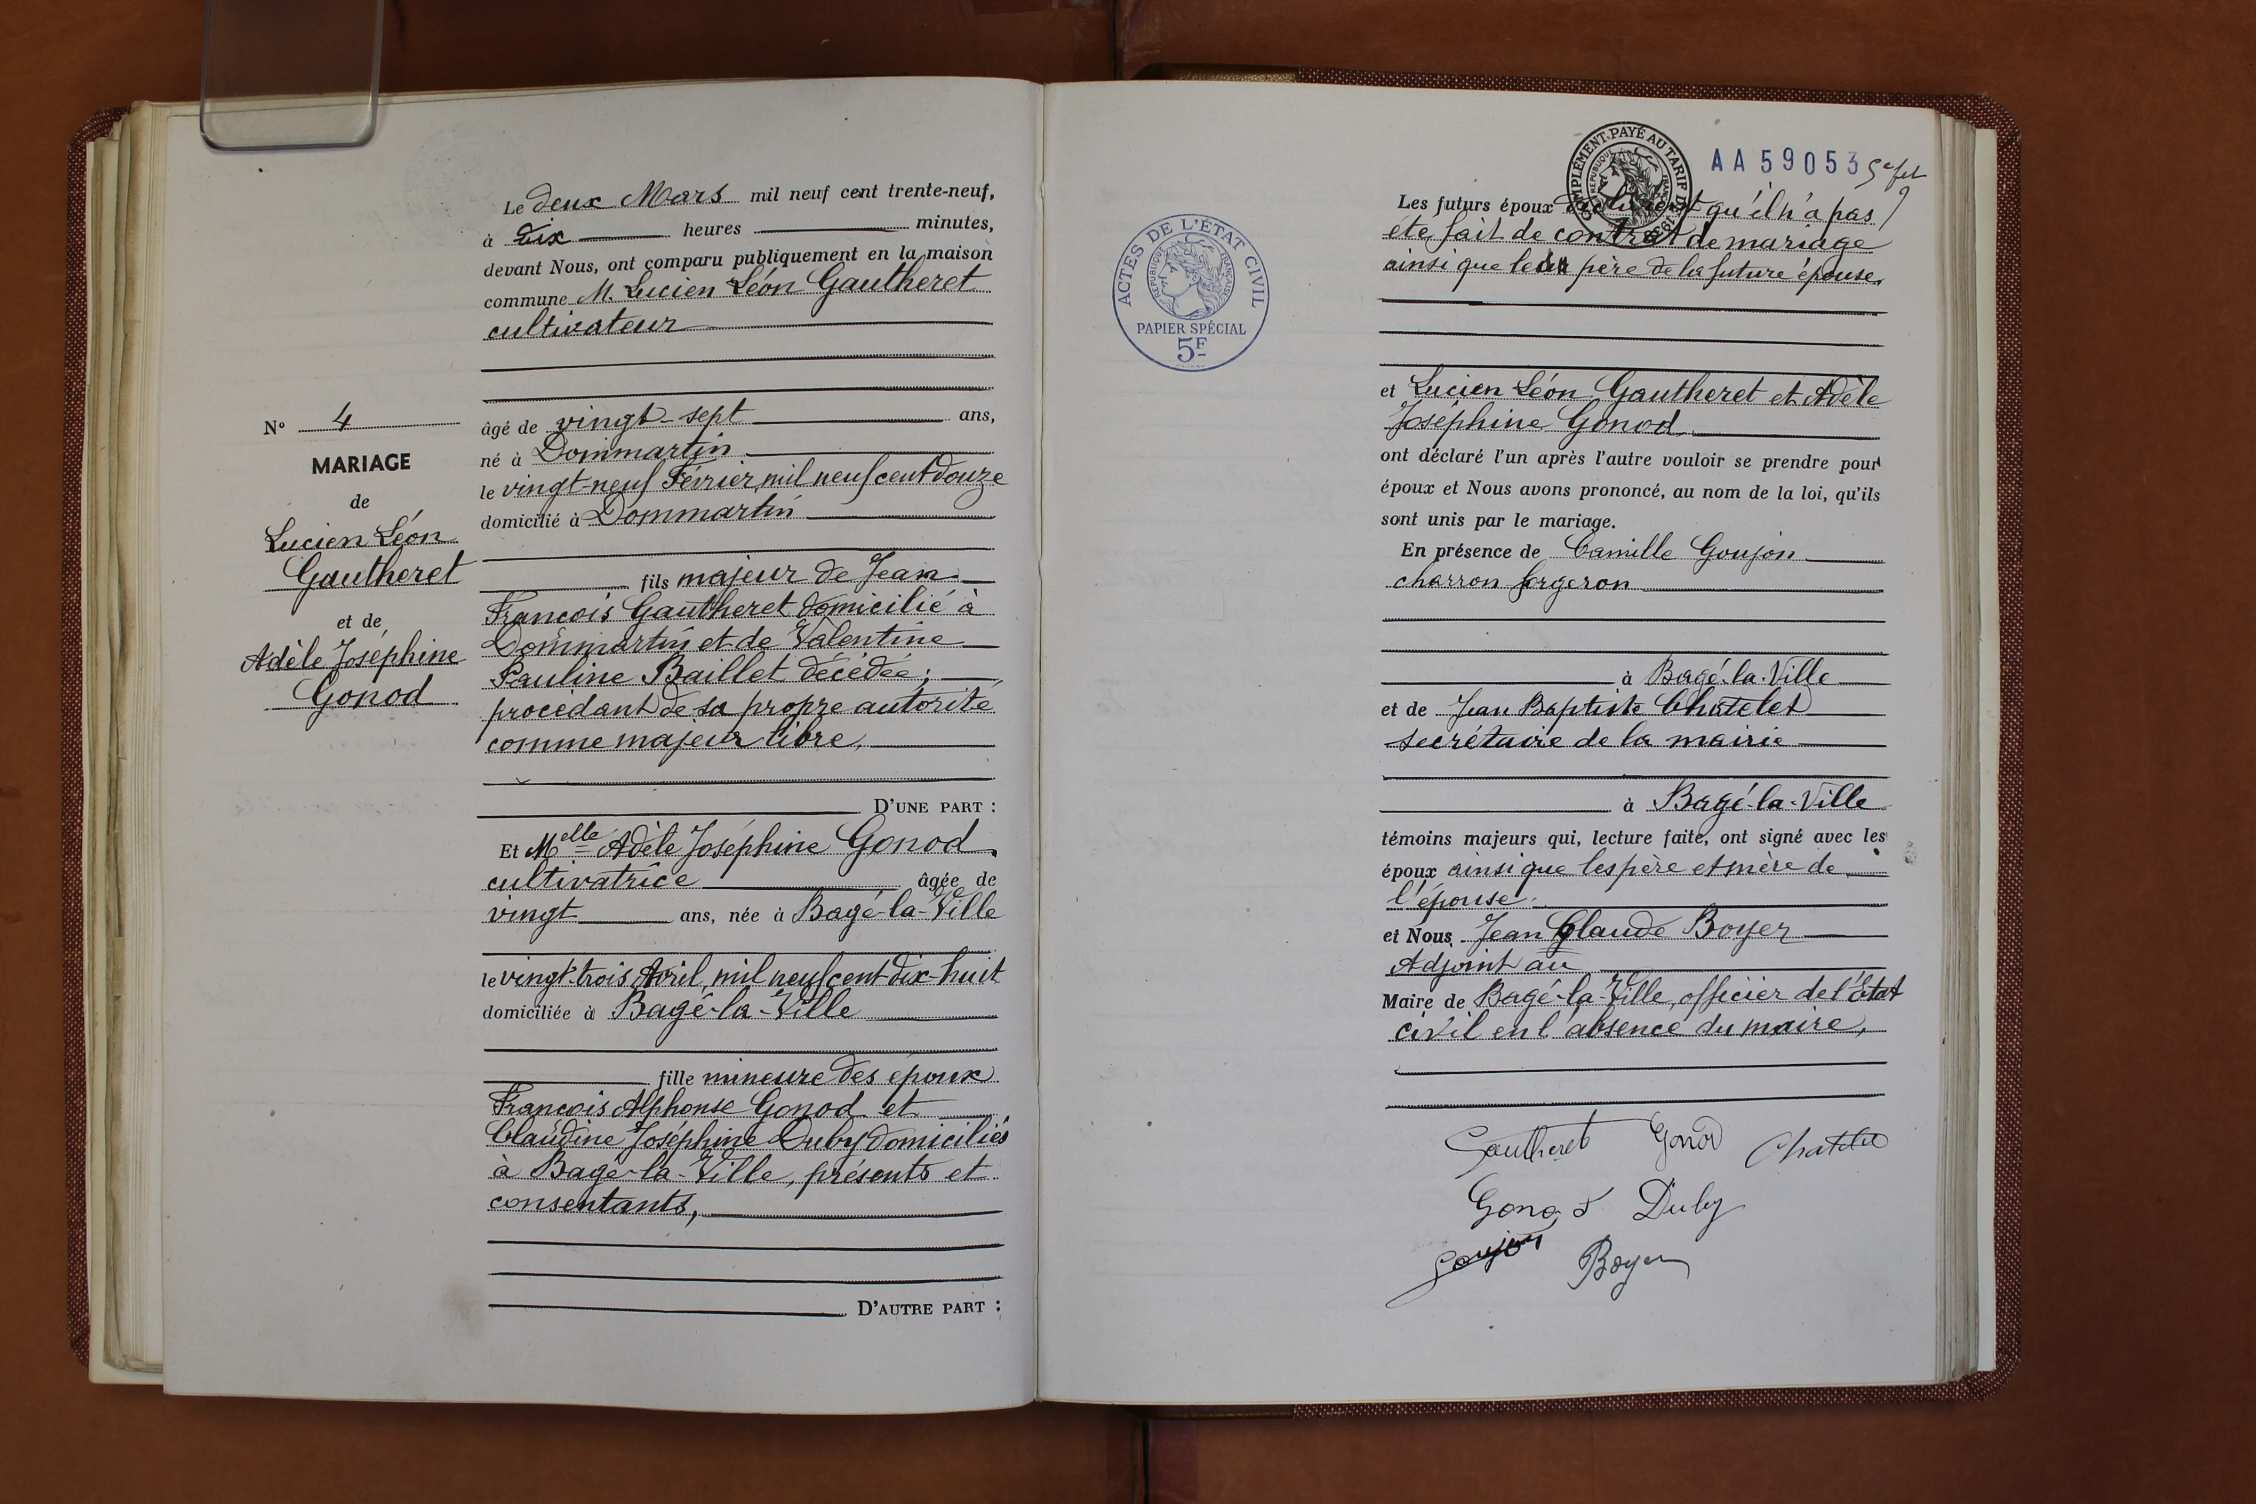 N° 4
MARIAGE
de
Lucien Léon
Gautheret
et de
Adèle Joséphine
Gonod
Le deux Mars mil neuf cent trente-neuf,
à dix heures minutes,
devant Nous, ont comparu publiquement en la maison
commune M. Lucien Léon Gautheret
cultivateur
âgé de vingt-sept ans,
né à Dommartin
le vingt-neuf Février mil neuf cent douze
domicilié à Dommartin
fils majeur de Jean
François Gautheret domicilié à
Dommartin et de Valentine
Pauline Baillet décédée;
procédant de sa propre autorité
comme majeur libre,
D'UNE PART :
Et Melle Adèle Joséphine Gonod
cultivatrice âgée de
vingt ans, née à Bagé-la-Ville
le vingt-trois Avril mil neuf cent dix-huit
domiciliée à Bagé-la-Ville
fille mineure des époux
François Alphonse Gonod et
Claudine Joséphine Duby domiciliés
à Bagé-la-Ville, présents et
consentants,
D'AUTRE PART :
ACTES DE L'ÉTAT CIVIL
RÉPUBLIQUE FRANÇAISE
PAPIER SPÉCIAL
5F
COMPLÉMENT PAYÉ AU TARIF DE
AA 59053
Les futurs époux déclarent qu'il n'a pas
été fait de contrat de mariage
ainsi que le père de la future épouse,
et Lucien Léon Gautheret et Adèle
Joséphine Gonod
ont déclaré l'un après l'autre vouloir se prendre pour
époux et Nous avons prononcé, au nom de la loi, qu'ils
sont unis par le mariage.
En présence de Camille Goujon
charron forgeron
à Bagé-la-Ville
et de Jean Baptiste Chatelet
secrétaire de la mairie
à Bagé-la-Ville
témoins majeurs qui, lecture faite, ont signé avec les
époux ainsi que les père et mère de
l'épouse.
et Nous Jean Claude Boyer
Adjoint au
Maire de Bagé-la-Ville, officier de l'état
civil en l'absence du maire,
Gautheret Gonod Chatelet
Gonod Duby
Goujon Boyer